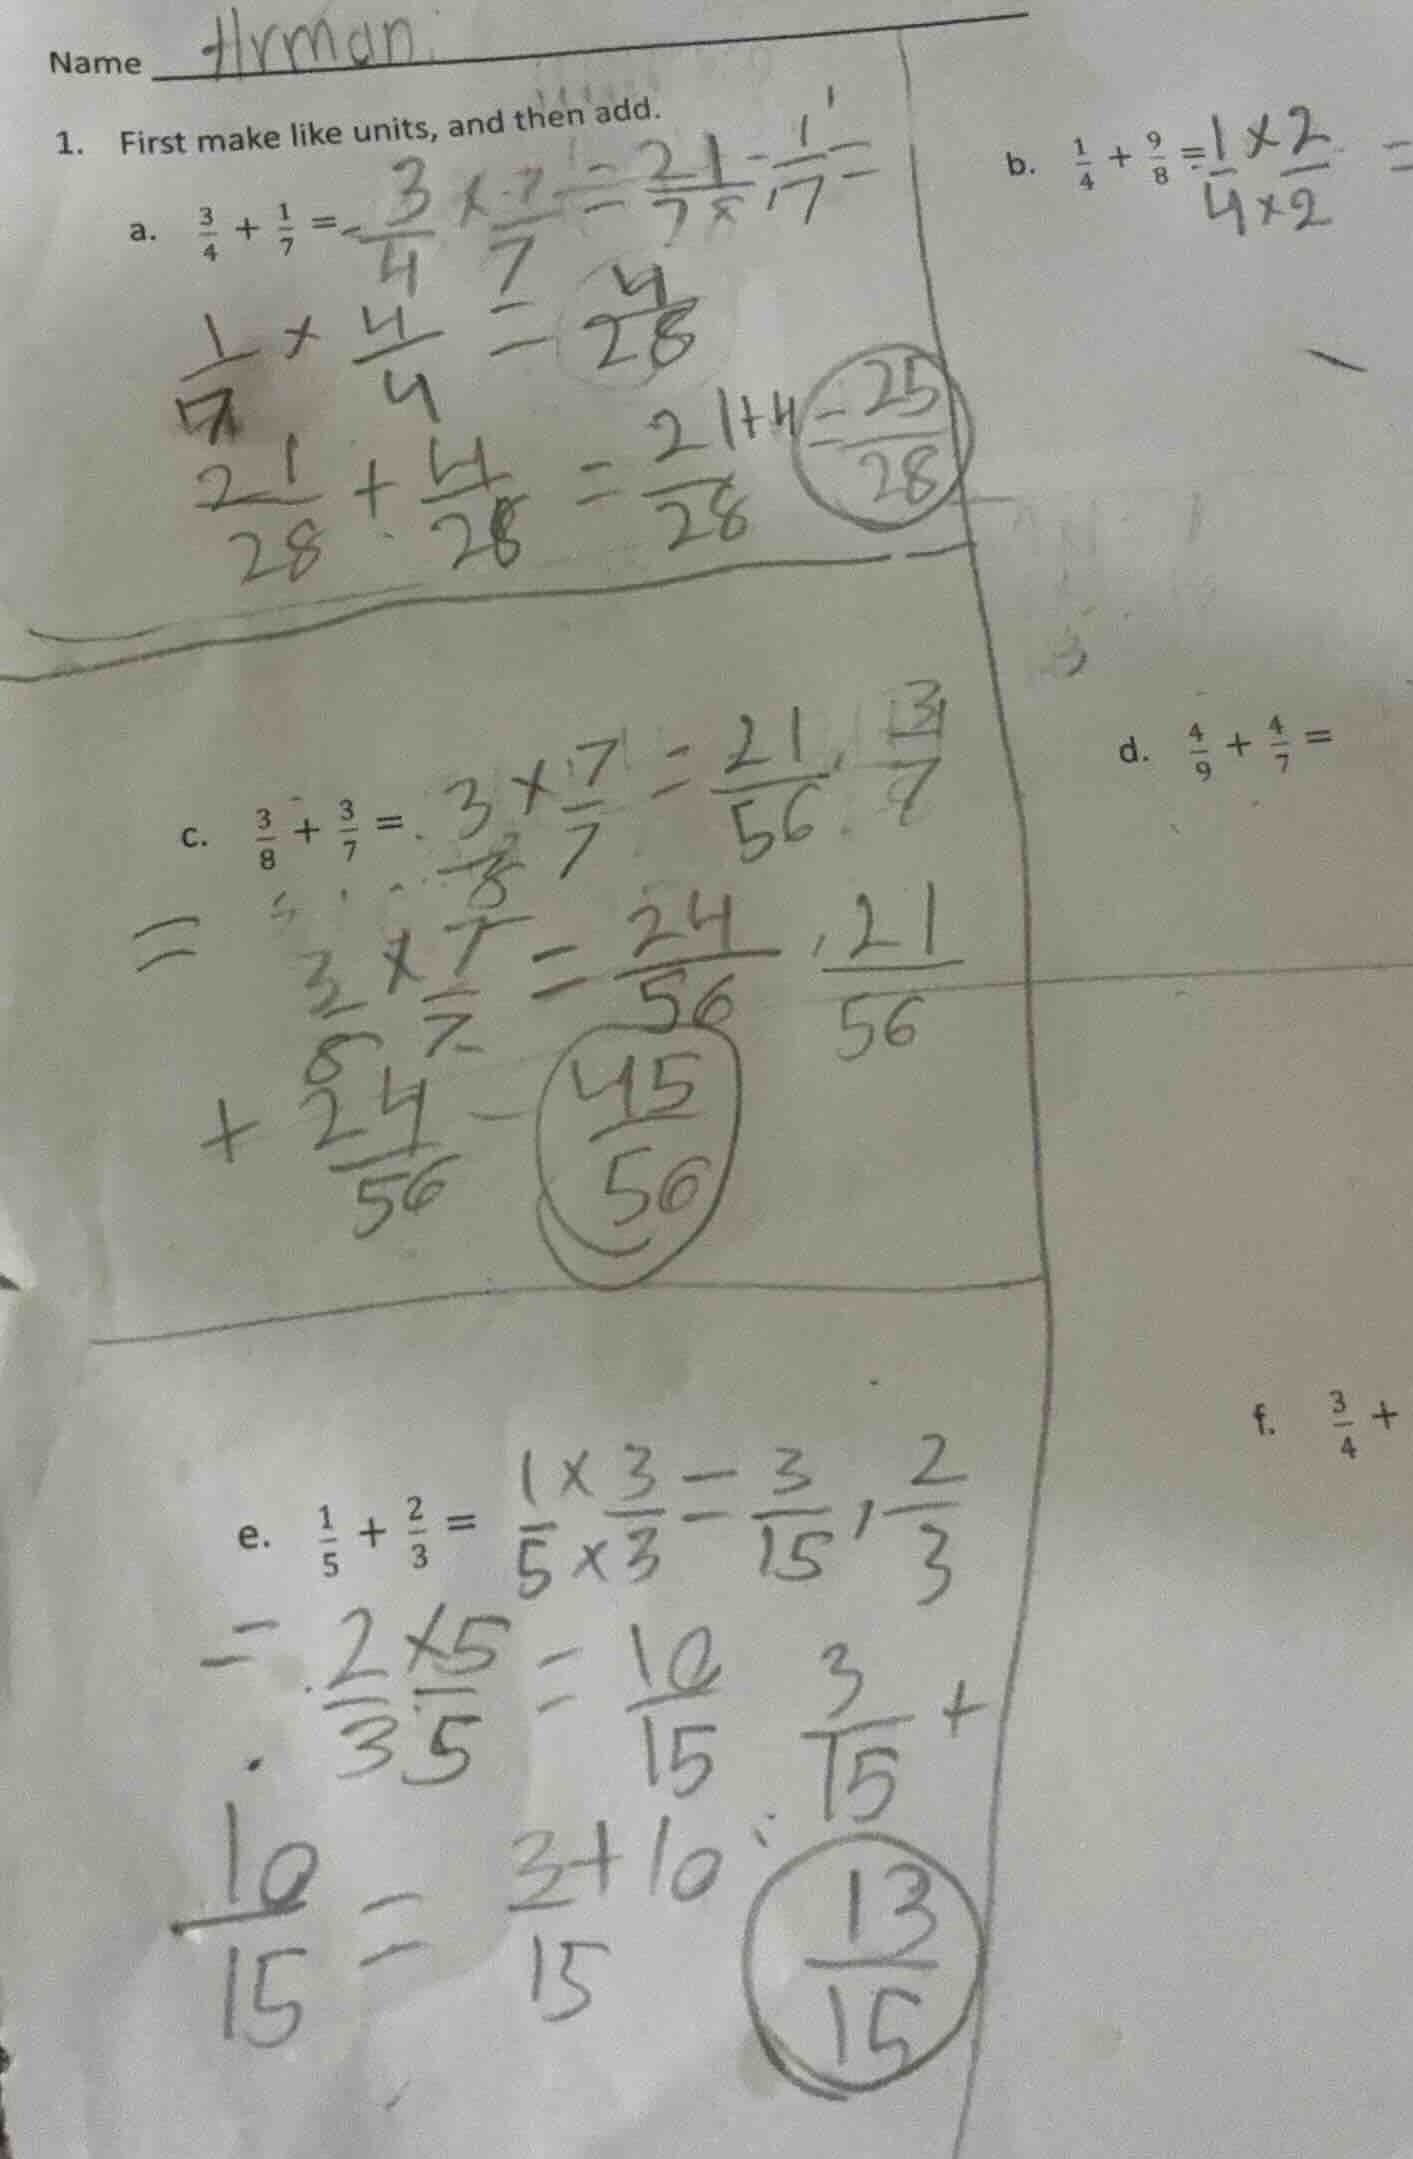 Name Arman
1. First make like units, and then add.
a. 3/4 + 1/7 = 3/4 × 7/7 = 21/28, 1/7 =
1/7 × 4/4 = 4/28
21/28 + 4/28 = 21+4/28 = 25/28
b. 1/4 + 9/8 = 1×2/4×2 =
c. 3/8 + 3/7 = 3/8 × 7/7 = 21/56, 3/7
= 3/8 × 7/7 = 24/56, 21/56
+ 24/56 = 45/56
d. 4/9 + 4/7 =
e. 1/5 + 2/3 = 1×3/5×3 = 3/15, 2/3
= 2/3 × 5/5 = 10/15 3/15 +
10/15 = 3+10/15 13/15
f. 3/4 +